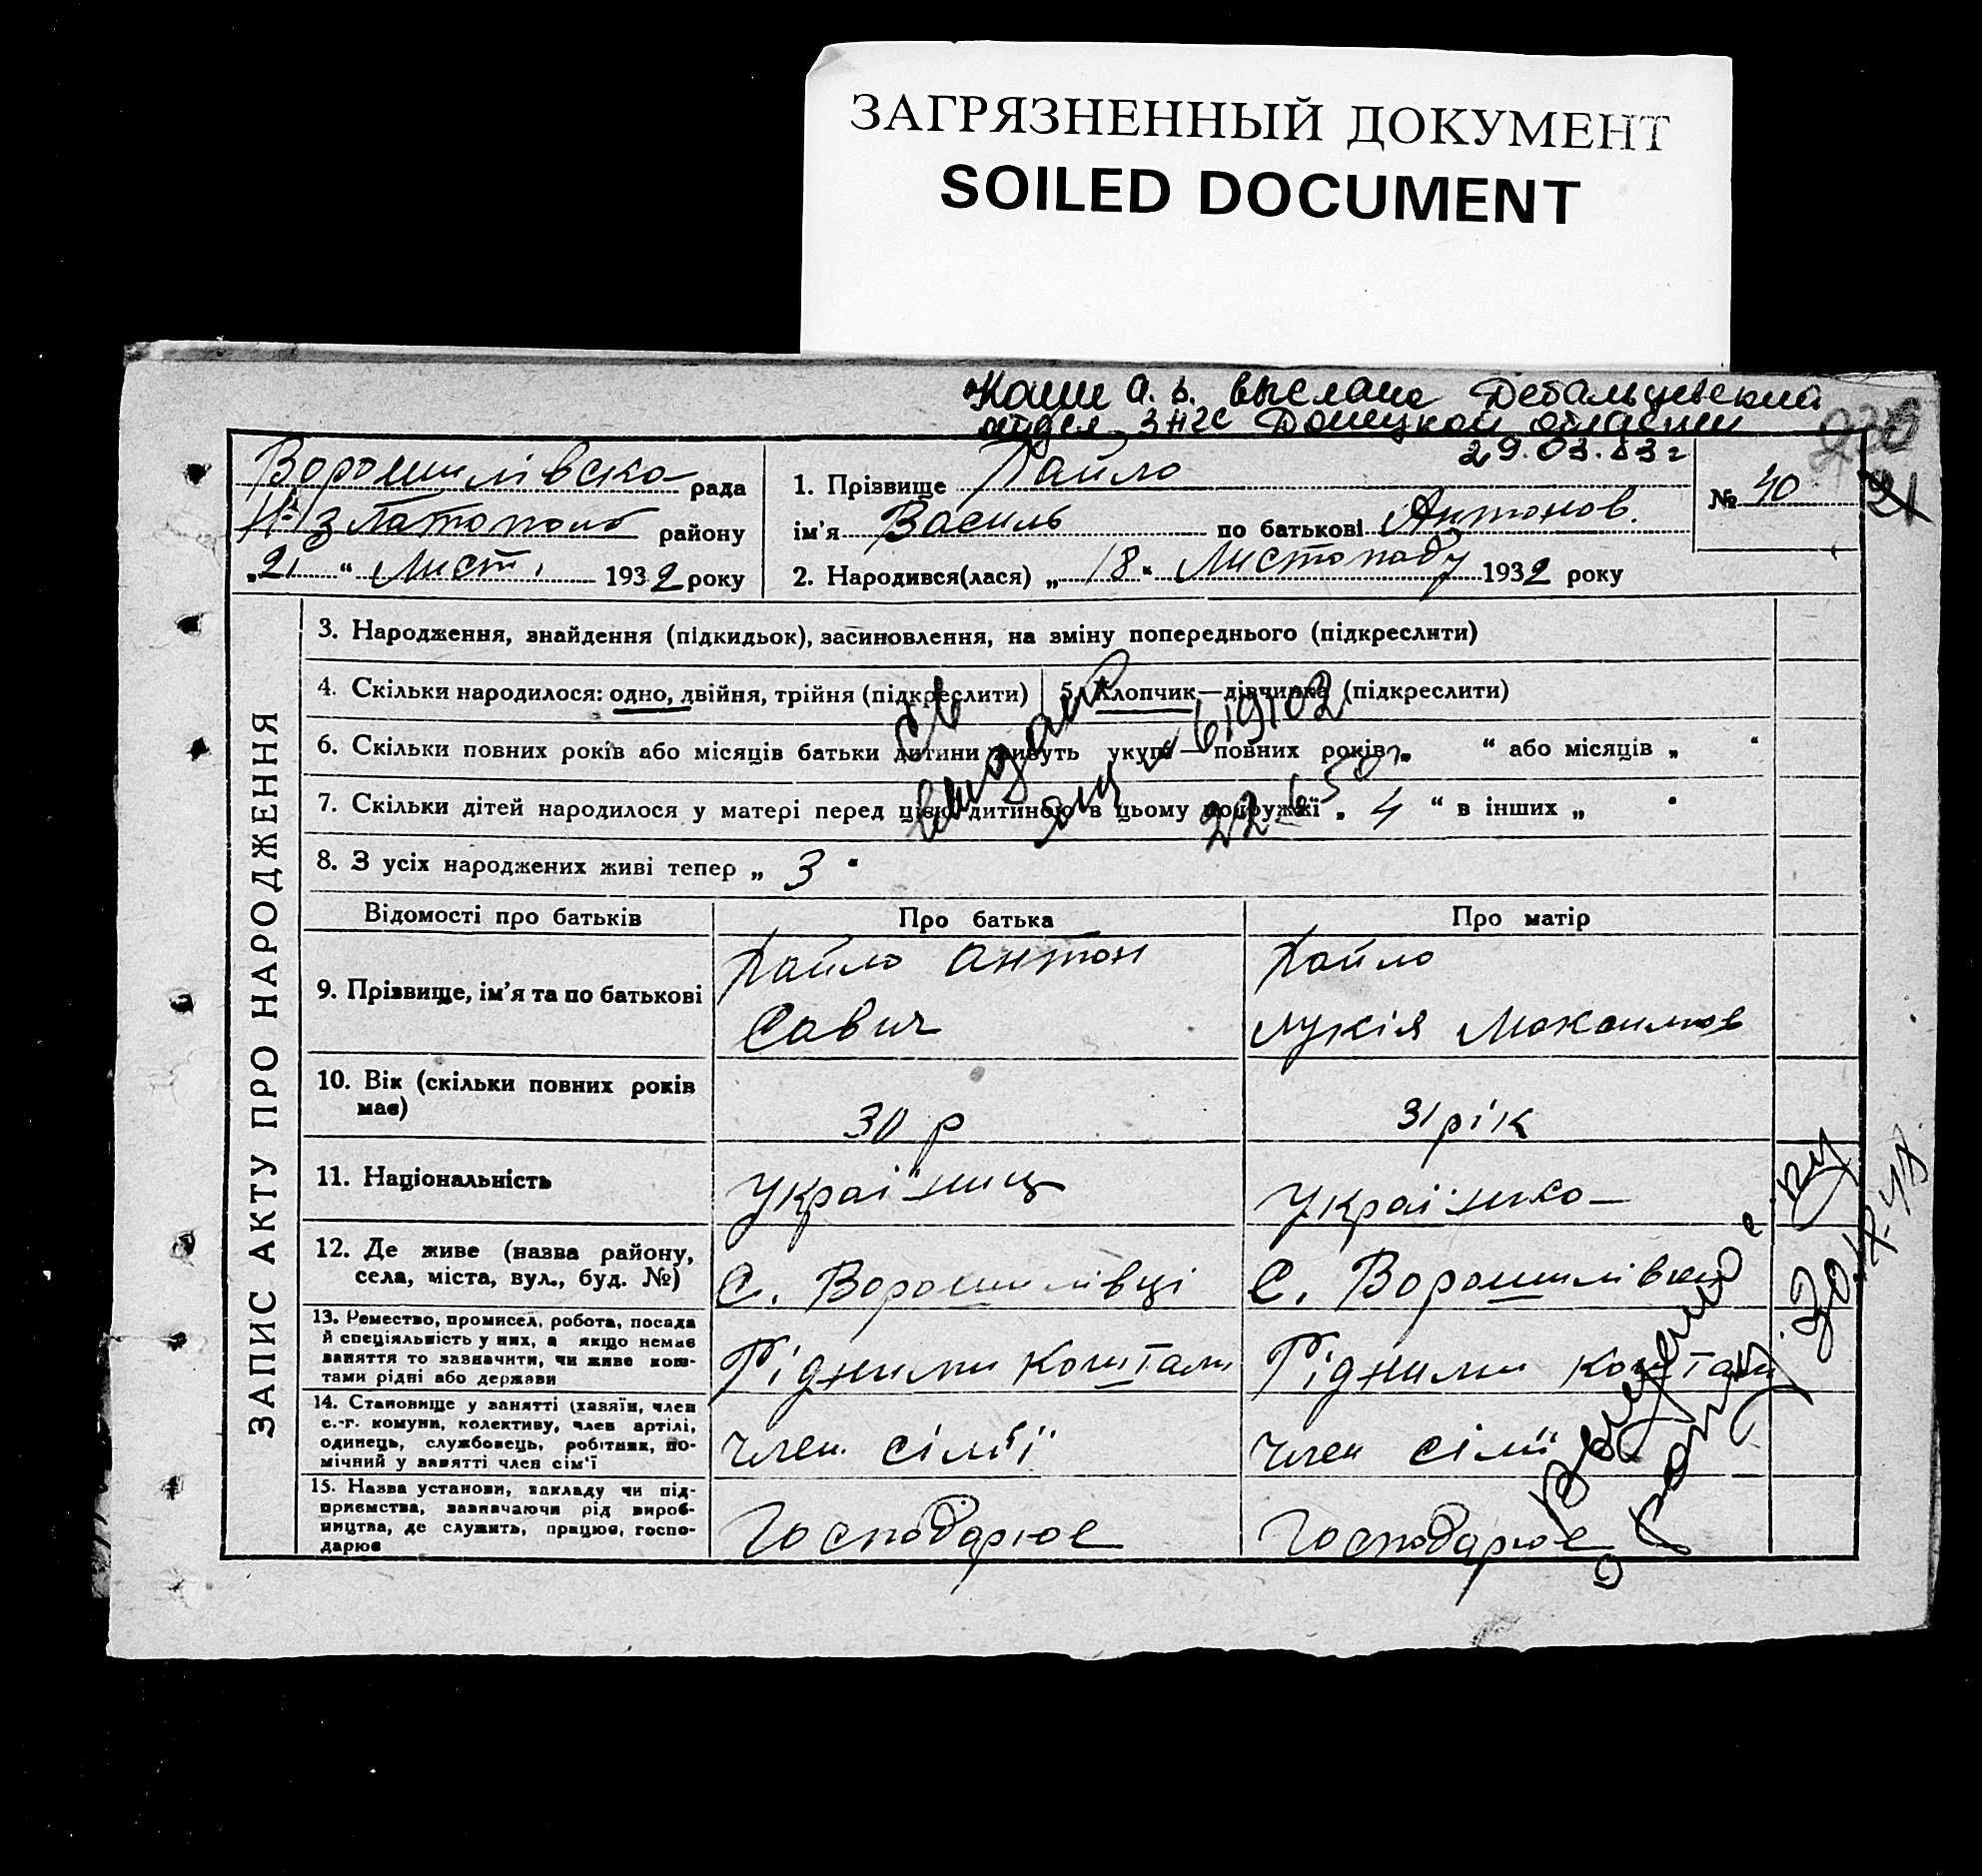 ЗАГРЯЗНЕННЫЙ ДОКУМЕНТ
SOILED DOCUMENT
Копие а. з. выслано Дебальцевский
отдел ЗАГС Донецкой области
29.03.83 г
Ворошилівска рада
району
„21“ Лист. 1932 року
1. Прізвище
№ 40
21
ім'я Василь по батькові Антонов.
2. Народився(лася) „18“ Листопаду 1932 року
ЗАПИС АКТУ ПРО НАРОДЖЕННЯ
3. Народження, знайдення (підкидьок), засиновлення, на зміну попереднього (підкреслити)
4. Скільки народилося: одно, двійня, трійня (підкреслити)
5. Хлопчик—дівчинка (підкреслити)
6. Скільки повних років або місяців батьки дитини живуть укупі— повних років „ “ або місяців „ “
7. Скільки дітей народилося у матері перед цією дитиною в цьому подружжі „ 4 “ в інших „ “
8. З усіх народжених живі тепер „ 3 “
Відомості про батьків
Про батька
Про матір
9. Прізвище, ім'я та по батькові
Антон
Савич
Лукія Максимов
10. Вік (скільки повних років має)
30 р
31 рік
11. Національність
Украінец
Украінка
12. Де живе (назва району, села, міста, вул., буд. №)
С. Ворошилівці
С. Ворошилівка
13. Ремество, промисел, робота, посада
й спеціяльність у них, а якщо немає
заняття то зазначити, чи живе кош-
тами рідні або держави
Рідними коштами
Рідними коштами
14. Становище у занятті (хазяїн, член
с.-г. комуни, колективу, член артілі,
одинець, службовець, робітник, по-
мічний у занятті член сім'ї
член сімї
член сімї
15. Назва установи, закладу чи під-
приємства, зазначаючи рід вироб-
ництва, де служить, працює, госпо-
дарює
Господарює
Господарює